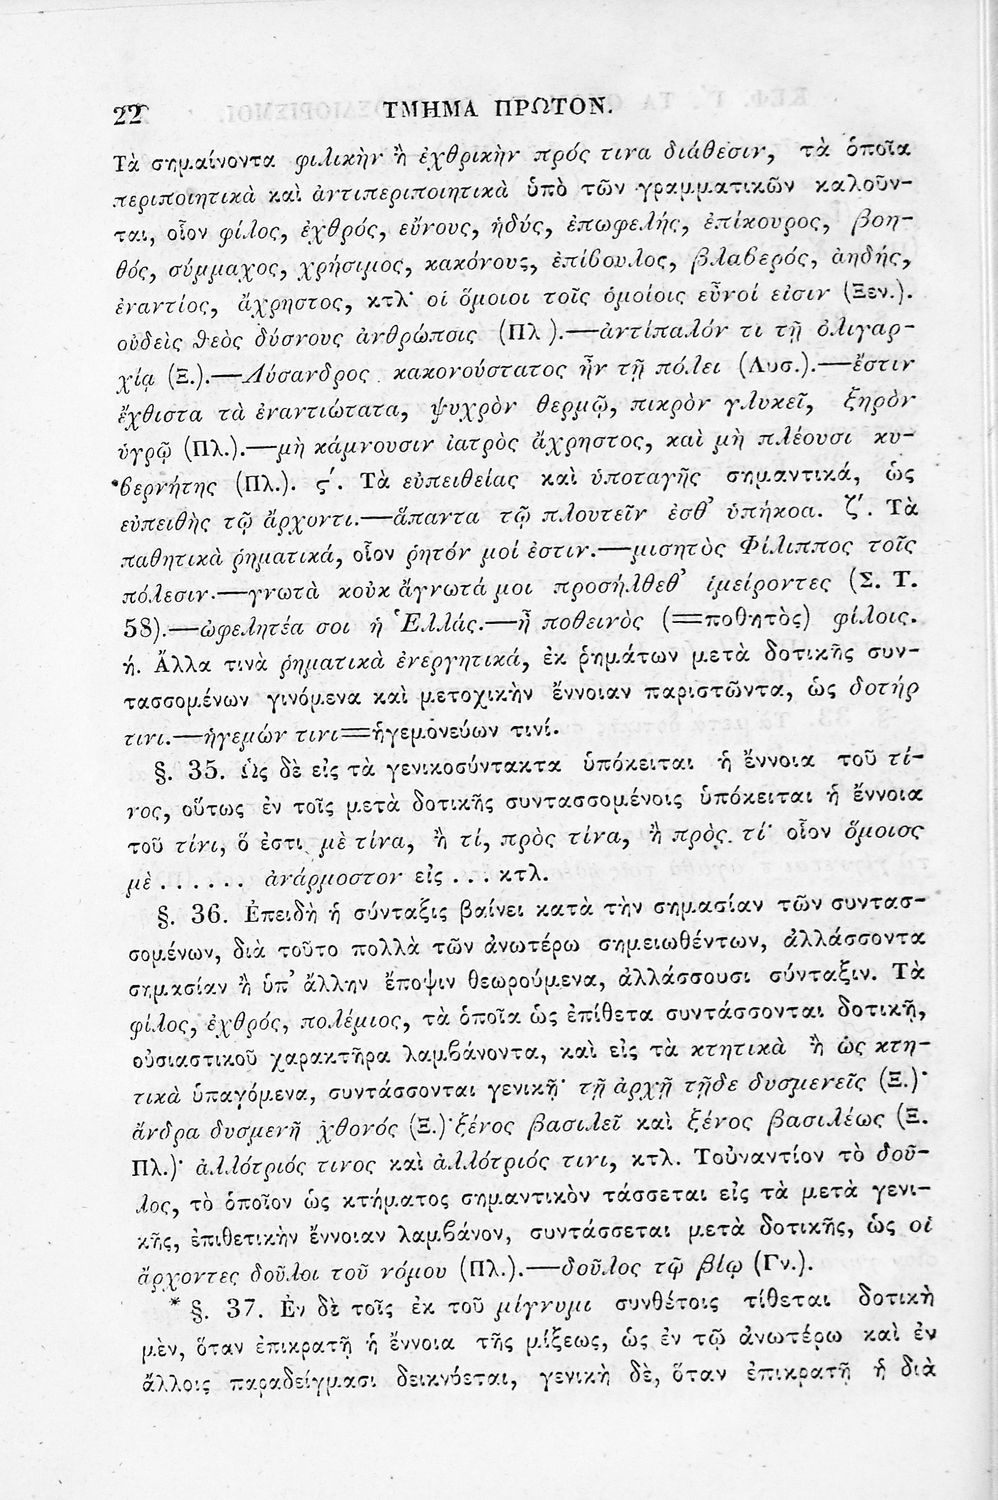 22 ΤΜΗΜΑ ΠΡΩΤΟΝ.
Τὰ σημαίνοντα φιλικὴν ἢ ἐχθρικὴν πρός τινα διάθεσιν, τὰ ὁποῖα
περιποιητικὰ καὶ ἀντιπεριποιητικὰ ὑπὸ τῶν γραμματικῶν καλοῦν-
ται, οἷον φίλος, ἐχθρός, εὔνους, ἡδύς, ἐπωφελής, ἐπίκουρος, βοη-
θός, σύμμαχος, χρήσιμος, κακόνους, ἐπίβουλος, βλαβερός, ἀηδής,
ἐναντίος, ἄχρηστος, κτλ· οἱ ὅμοιοι τοῖς ὁμοίοις εὖνοί εἰσιν (Ξεν.).
οὐδεὶς θεὸς δύσνους ἀνθρώποις (Πλ ).—ἀντίπαλόν τι τῇ ὀλιγαρ-
χίᾳ (Ξ.).—Λύσανδρος κακονούστατος ἦν τῇ πόλει (Λυσ.).—ἔστιν
ἔχθιστα τὰ ἐναντιώτατα, ψυχρὸν θερμῷ, πικρὸν γλυκεῖ, ξηρὸν
ὑγρῷ (Πλ.).—μὴ κάμνουσιν ἰατρὸς ἄχρηστος, καὶ μὴ πλέουσι κυ-
βερνήτης (Πλ.). ϛ΄. Τὰ εὐπειθείας καὶ ὑποταγῆς σημαντικά, ὡς
εὐπειθὴς τῷ ἄρχοντι.—ἅπαντα τῷ πλουτεῖν ἐσθ’ ὑπήκοα. ζ΄. Τὰ
παθητικὰ ῥηματικά, οἷον ῥητόν μοί ἐστιν.—μισητὸς Φίλιππος τοῖς
πόλεσιν.—γνωτὰ κοὐκ ἄγνωτά μοι προσήλθεθ’ ἱμείροντες (Σ. Τ.
58).—ὠφελητέα σοι ἡ Ἑλλάς.—ᾗ ποθεινὸς (=ποθητὸς) φίλοις.
ή. Ἄλλα τινὰ ῥηματικὰ ἐνεργητικά, ἐκ ῥημάτων μετὰ δοτικῆς συν-
τασσομένων γινόμενα καὶ μετοχικὴν ἔννοιαν παριστῶντα, ὡς δοτήρ
τινι.—ἡγεμών τινι=ἡγεμονεύων τινί.
§. 35. Ὡς δὲ εἰς τὰ γενικοσύντακτα ὑπόκειται ἡ ἔννοια τοῦ τί-
νος, οὕτως ἐν τοῖς μετὰ δοτικῆς συντασσομένοις ὑπόκειται ἡ ἔννοια
τοῦ τίνι, ὅ ἐστι μὲ τίνα, ἢ τί, πρὸς τίνα, ἢ πρὸς τί· οἷον ὅμοιος
μὲ . . . . . . ἀνάρμοστον εἰς . . . κτλ.
§. 36. Ἐπειδὴ ἡ σύνταξις βαίνει κατὰ τὴν σημασίαν τῶν συντασ-
σομένων, διὰ τοῦτο πολλὰ τῶν ἀνωτέρω σημειωθέντων, ἀλλάσσοντα
σημασίαν ἢ ὑπ’ ἄλλην ἔποψιν θεωρούμενα, ἀλλάσσουσι σύνταξιν. Τὰ
φίλος, ἐχθρός, πολέμιος, τὰ ὁποῖα ὡς ἐπίθετα συντάσσονται δοτικῇ,
οὐσιαστικοῦ χαρακτῆρα λαμβάνοντα, καὶ εἰς τὰ κτητικὰ ἢ ὡς κτη-
τικὰ ὑπαγόμενα, συντάσσονται γενικῇ· τῇ ἀρχῇ τῇδε δυσμενεῖς (Ξ.)·
ἄνδρα δυσμενῆ χθονός (Ξ.)· ξένος βασιλεῖ καὶ ξένος βασιλέως (Ξ.
Πλ.)· ἀλλότριός τινος καὶ ἀλλότριός τινι, κτλ. Τοὐναντίον τὸ δοῦ-
λος, τὸ ὁποῖον ὡς κτήματος σημαντικὸν τάσσεται εἰς τὰ μετὰ γενι-
κῆς, ἐπιθετικὴν ἔννοιαν λαμβάνον, συντάσσεται μετὰ δοτικῆς, ὡς οἱ
ἄρχοντες δοῦλοι τοῦ νόμου (Πλ.).—δοῦλος τῷ βίῳ (Γν.).
* §. 37. Ἐν δὲ τοῖς ἐκ τοῦ μίγνυμι συνθέτοις τίθεται δοτικὴ
μὲν, ὅταν ἐπικρατῇ ἡ ἔννοια τῆς μίξεως, ὡς ἐν τῷ ἀνωτέρω καὶ ἐν
ἄλλοις παραδείγμασι δεικνύεται, γενικὴ δὲ, ὅταν ἐπικρατῇ ἡ διὰ